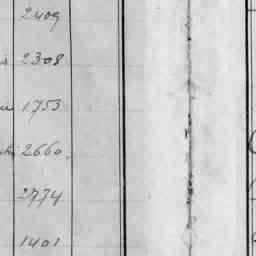 2409
2308
1753
2660
2774
1401